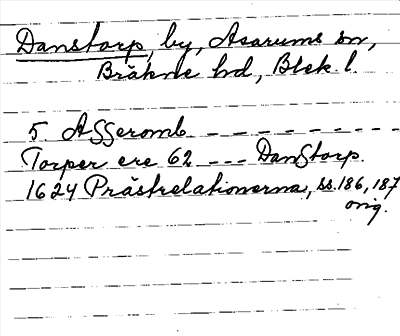 Danstorp, by, Asarums sn,
Bräkne hd, Blek. l.
5. ASSeromb - - - - - - - - -
Torper ere 62 - - - DanStorp.
1624 Prästrelationerna, ss. 186, 187
orig.